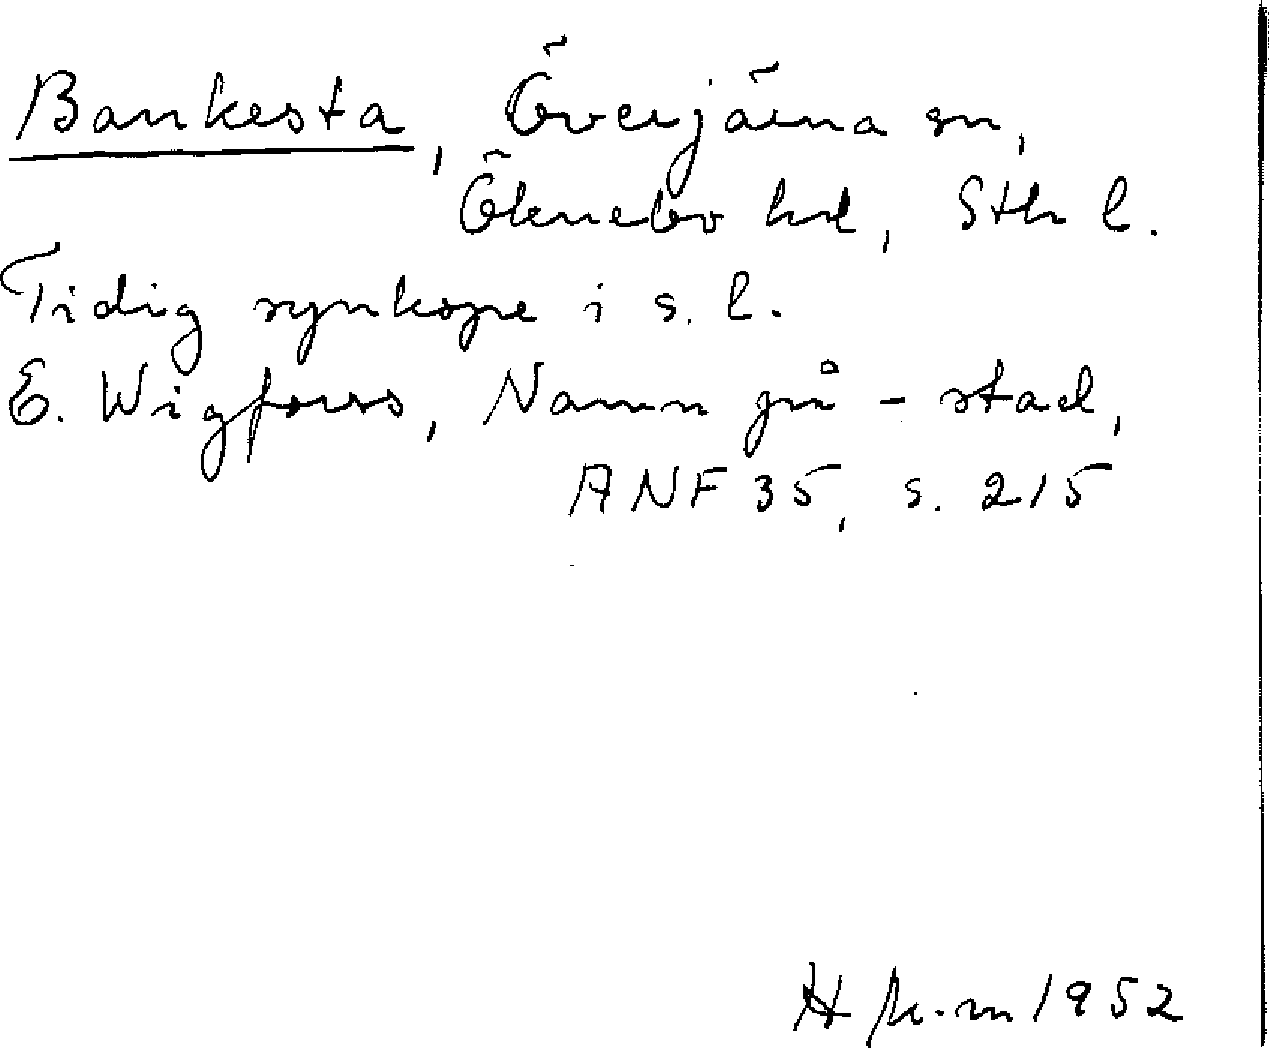 Bankesta, Överjärna sn,
Öknebo hd, Sth l.
Tidig synkope i s. l.
E. Wigforss, Namn på -stad,
ANF 35, s. 215
1952